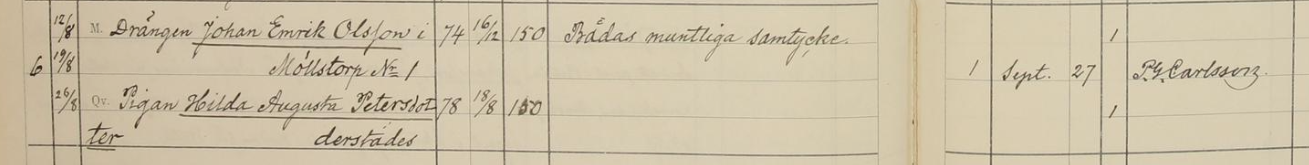 12/8 M. Drängen Johan Emrik Olsson i 74 16/12 150 Bådas muntliga samtycke. 1
6 19/8 Möllstorp No 1 1 Sept. 27 P.G. Carlsson.
26/8 Qv. Pigan Hilda Augusta Petersdot 78 18/8 150 1
ter derstädes